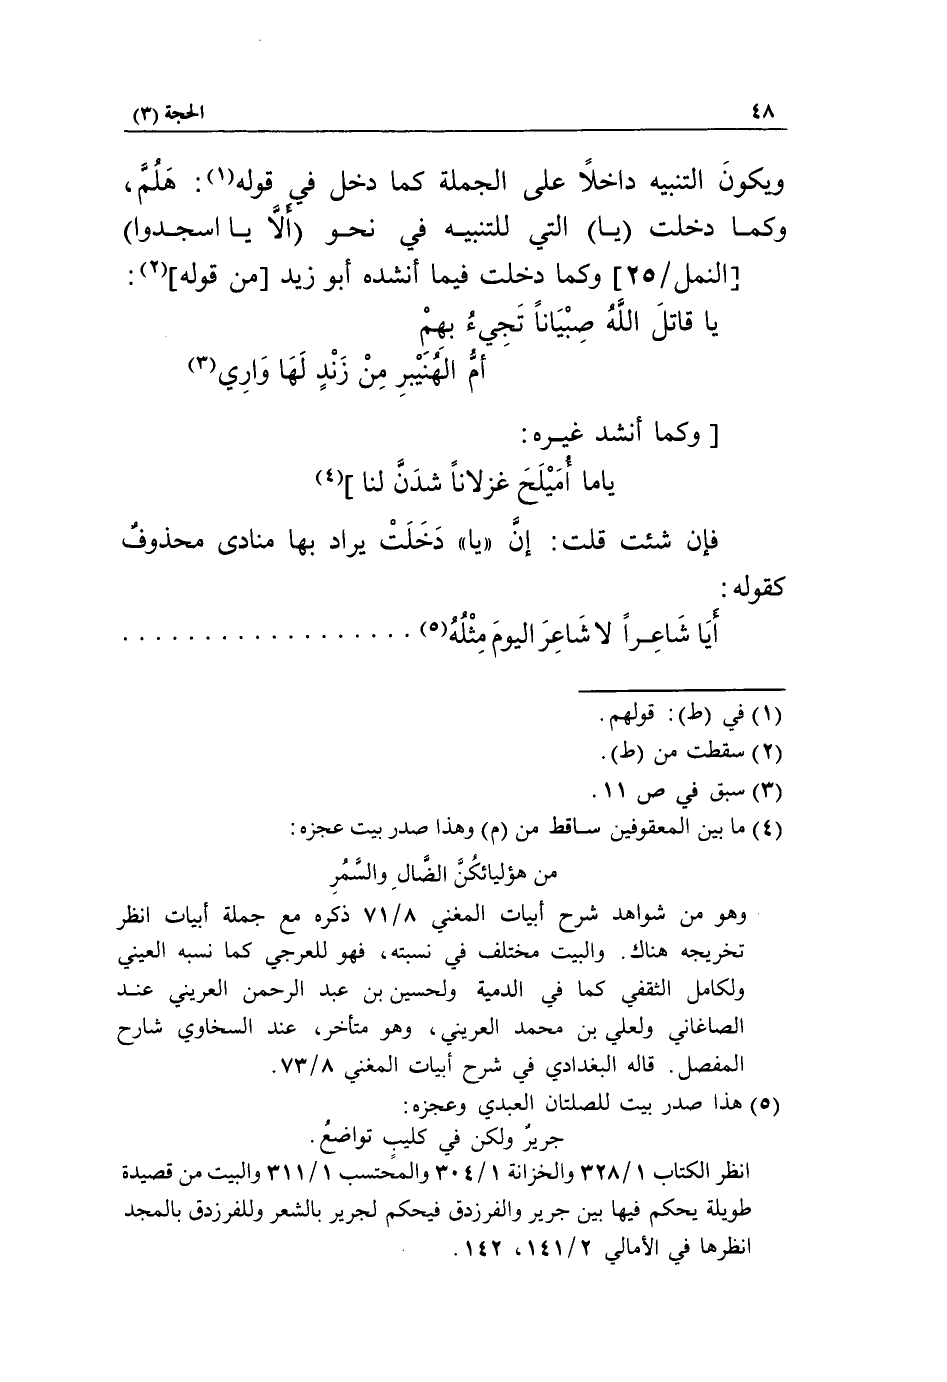 ٤٨ الحجة (٣)
ويكونَ التنبيه داخلاً على الجملة كما دخل في قوله(١): هَلُمَّ،
وكمـا دخلت (يـا) التي للتنبيـه في نحـو (أَلَّا يـا اسجـدوا)
[النمل/٢٥] وكما دخلت فيما أنشده أبو زيد [من قوله](٢):
يا قاتلَ اللَّهُ صِبْيَاناً تَجِيءُ بِهِمْ
أمُّ الهُنَيْبِرِ مِنْ زَنْدٍ لَهَا وَارِي(٣)
[ وكما أنشد غيـره:
ياما أُمَيْلَحَ غزلاناً شدَنَّ لنا ](٤)
فإن شئت قلت: إنَّ «يا» دَخَلَتْ يراد بها منادى محذوفٌ
كقوله:
أَيَا شَاعِـراً لا شَاعِرَ اليومَ مِثْلُهُ(٥) . . . . . . . . . . . . . . . . . .
(١) في (ط): قولهم.
(٢) سقطت من (ط).
(٣) سبق في ص ١١.
(٤) ما بين المعقوفين سـاقط من (م) وهذا صدر بيت عجزه:
من هؤليائكُنَّ الضَّالِ والسَّمُرِ
وهو من شواهد شرح أبيات المغني ٧١/٨ ذكره مع جملة أبيات انظر
تخريجه هناك. والبيت مختلف في نسبته، فهو للعرجي كما نسبه العيني
ولكامل الثقفي كما في الدمية ولحسين بن عبد الرحمن العريني عنـد
الصاغاني ولعلي بن محمد العريني، وهو متأخر، عند السخاوي شارح
المفصل. قاله البغدادي في شرح أبيات المغني ٧٣/٨.
(٥) هذا صدر بيت للصلتان العبدي وعجزه:
جريرٌ ولكن في كليبٍ تواضعُ.
انظر الكتاب ٣٢٨/١ والخزانة ٣٠٤/١ والمحتسب ٣١١/١ والبيت من قصيدة
طويلة يحكم فيها بين جرير والفرزدق فيحكم لجرير بالشعر وللفرزدق بالمجد
انظرها في الأمالي ١٤١/٢، ١٤٢.